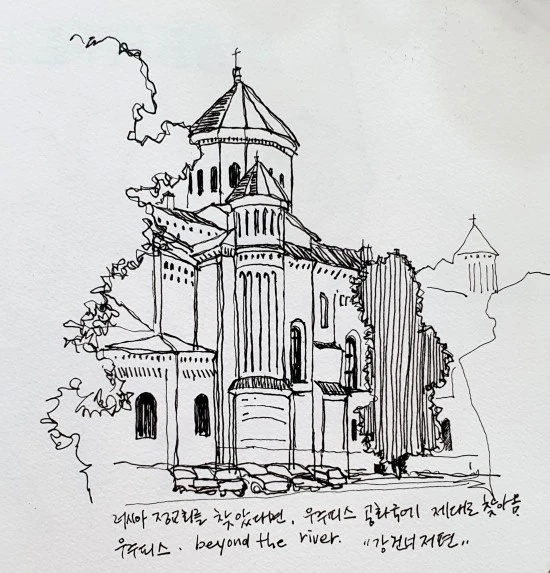 러시아 정교회를 찾았다면, 우주피스 공화국에 제대로 찾아옴
우주피스. beyond the river. "강건너저편"